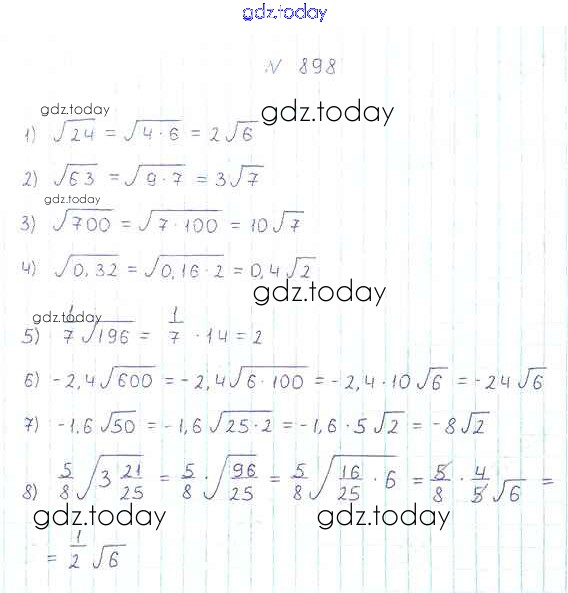 gdz.today
№ 898
gdz.today
gdz.today
1) √24 = √4·6 = 2√6
2) √63 = √9·7 = 3√7
gdz.today
3) √700 = √7·100 = 10√7
4) √0,32 = √0,16·2 = 0,4√2
gdz.today
gdz.today
5) 1/7 √196 = 1/7 · 14 = 2
6) -2,4√600 = -2,4√6·100 = -2,4·10√6 = -24√6
7) -1,6√50 = -1,6√25·2 = -1,6·5√2 = -8√2
8) 5/8 √3 21/25 = 5/8 · √96/25 = 5/8 √16/25 · 6 = 5/8 · 4/5 √6 =
gdz.today
gdz.today
= 1/2 √6